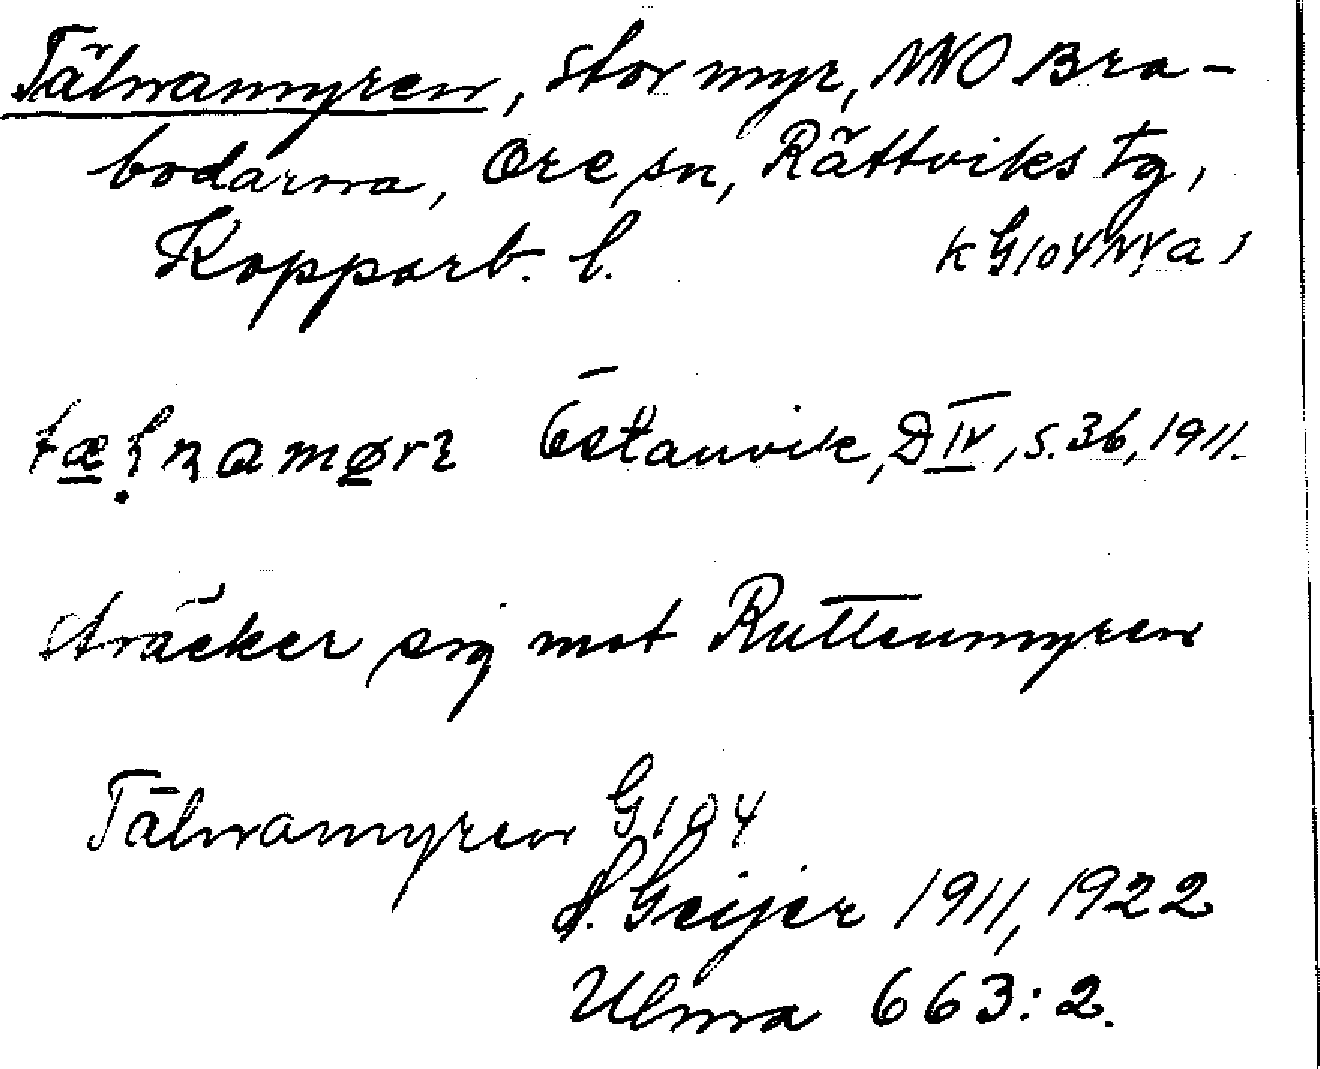 Tälnamyren, stor myr, NNO Bra-
bodarna, Ore sn, Rättviks tg,
Kopparb. l. K G104 NVa 1
Östanvik, D IV, s. 36, 1911.
sträcker sig mot Ruttenmyren
Tälnamyren G104
H. Geijer 1911, 1922
Ulma 663:2.